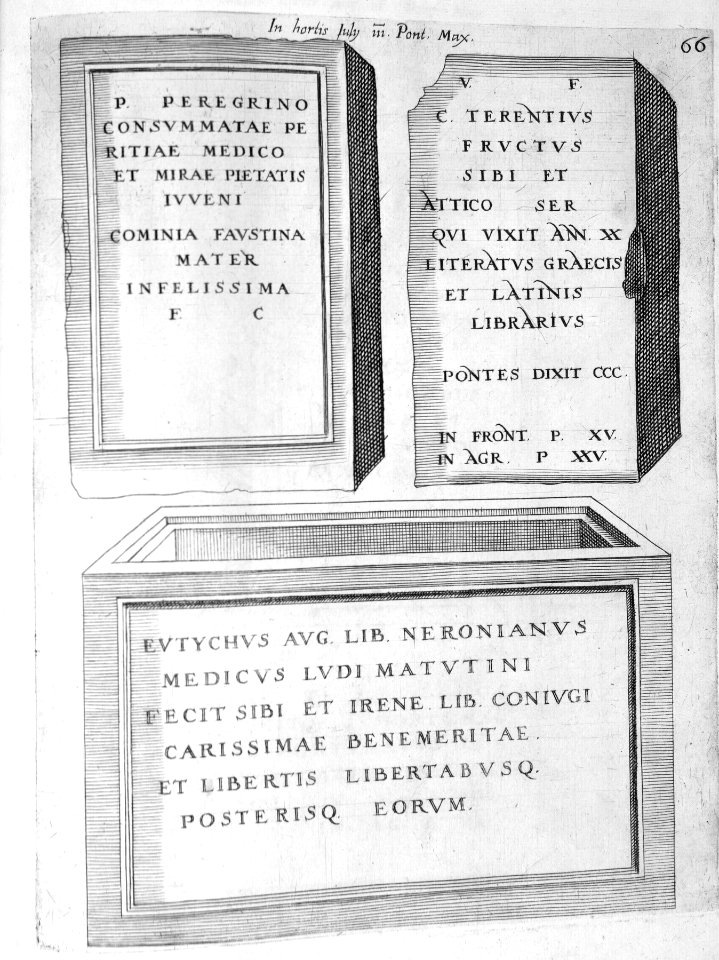 In hortis July iii. Pont. Max.
66
P. PEREGRINO
CONSVMMATAE PE
RITIAE MEDICO
ET MIRAE PIETATIS
IVVENI
COMINIA FAVSTINA
MATER
INFELISSIMA
F C
V. F.
C. TERENTIVS
FRVCTVS
SIBI ET
ATTICO SER
QVI VIXIT ANN. XX
LITERATVS GRAECIS
ET LATINIS
LIBRARIVS
PONTES DIXIT CCC.
IN FRONT. P. XV.
IN AGR. P XXV.
EVTYCHVS AVG. LIB. NERONIANVS
MEDICVS LVDI MATVTINI
FECIT SIBI ET IRENE LIB. CONIVGI
CARISSIMAE BENEMERITAE.
ET LIBERTIS LIBERTABVSQ.
POSTERISQ. EORVM.